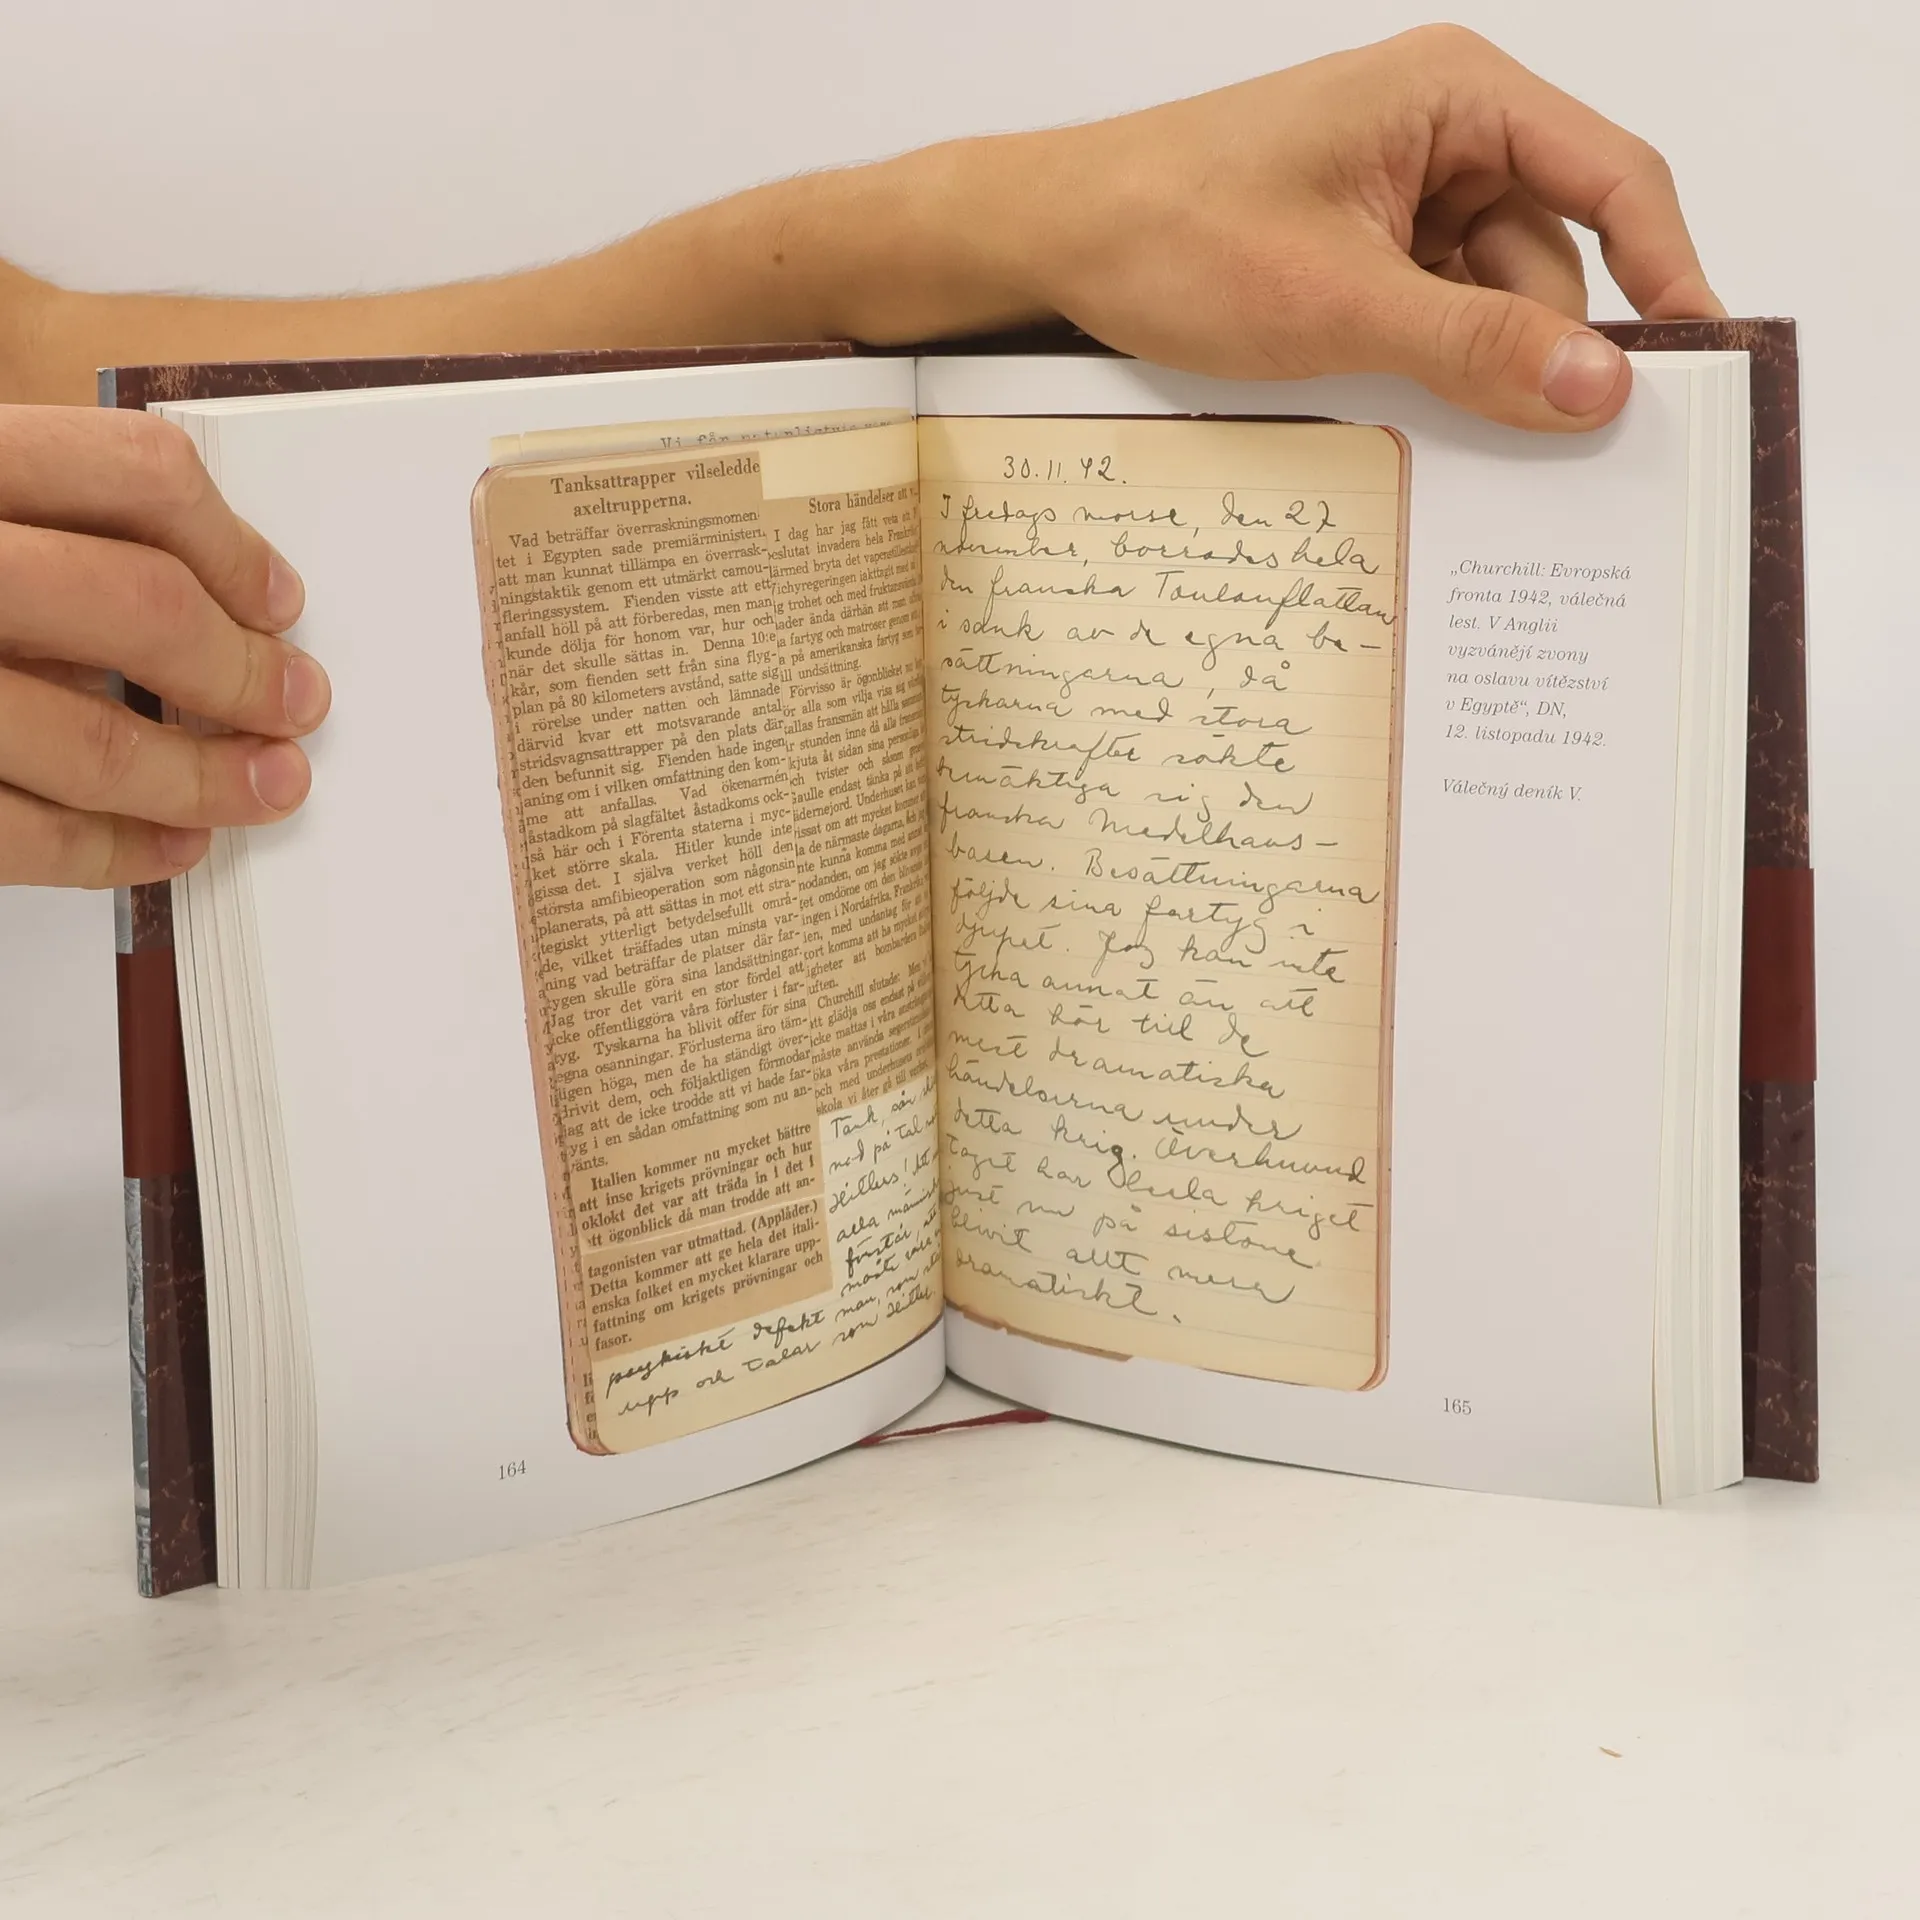 Vi får naturligtvis
Tanksattrapper vilseledde
axeltrupperna.
Vad beträffar överraskningsmomen-
tet i Egypten sade premiärministern,
att man kunnat tillämpa en överrask-
ningstaktik genom ett utmärkt camou-
fleringssystem. Fienden visste att ett
anfall höll på att förberedas, men man
kunde dölja för honom var, hur och
när det skulle sättas in. Denna 10:e
kår, som fienden sett från sina flyg-
plan på 80 kilometers avstånd, satte sig
i rörelse under natten och lämnade
därvid kvar ett motsvarande antal
stridsvagnsattrapper på den plats där
den befunnit sig. Fienden hade ingen
aning om i vilken omfattning den kom-
me att anfallas. Vad ökenarmén
åstadkom på slagfältet åstadkoms ock-
så här och i Förenta staterna i myc-
ket större skala. Hitler kunde inte
gissa det. I själva verket höll den
största amfibieoperation som någonsin
planerats, på att sättas in mot ett stra-
tegiskt ytterligt betydelsefullt områ-
de, vilket träffades utan minsta var-
ning vad beträffar de platser där far-
tygen skulle göra sina landsättningar.
Jag tror det varit en stor fördel att
icke offentliggöra våra förluster i far-
tyg. Tyskarna ha blivit offer för sina
egna osanningar. Förlusterna äro täm-
ligen höga, men de ha ständigt över-
drivit dem, och följaktligen förmodar
jag att de icke trodde att vi hade far-
tyg i en sådan omfattning som nu an-
vänts.
Italien kommer nu mycket bättre
att inse krigets prövningar och hur
oklokt det var att träda in i det i
ett ögonblick då man trodde att an-
tagonisten var utmattad. (Applåder.)
Detta kommer att ge hela det itali-
enska folket en mycket klarare upp-
fattning om krigets prövningar och
fasor.
Stora händelser att
I dag har jag fått veta att
beslutat invadera hela
därmed bryta det
Vichyregeringen iakttagit med
trohet och med
ända därhän att man
fartyg och matroser genom
på amerikanska fartyg som
till undsättning.
Förvisso är ögonblicket nu
för alla som vilja visa sig
fransmän att hålla
stunden inne då alla
skjuta åt sidan sina personliga
och tvister och såsom
Gaulle endast tänka på att
fädernejord. Underhuset kan vara
om att mycket kommer att
de närmaste dagarna, och
kunna komma med annat
om jag sökte avge
omdöme om den
ingen i Nordafrika, Frankrike
med undantag för att
fort komma att ha mycket
möjligheter att bombardera
luften.
Churchill slutade: Men
att glädja oss endast på
icke mattas i våra
måste använda
öka våra prestationer.
och med underhusets
skola vi åter gå till verket.
Tänk, så
ned på tal
Hitlers! Att
alla människor
förstår, att
måste vara
psykiskt defekt man, som står
upp och talar som Hitler.
164
30.11.42.
I fredags morse, den 27
november, borrades hela
den franska Toulonflottan
i sank av de egna be-
sättningarna, då
tyskarna med stora
stridskrafter sökte
bemäktiga sig den
franska Medelhavs-
basen. Besättningarna
följde sina fartyg i
djupet. Jag kan inte
tycka annat än att
detta hör till de
mest dramatiska
händelserna under
detta krig. Överhuvud
taget har hela kriget
just nu på sistone
blivit allt mera
dramatiskt.
„Churchill: Evropská
fronta 1942, válečná
lest. V Anglii
vyzvánějí zvony
na oslavu vítězství
v Egyptě“, DN,
12. listopadu 1942.
Válečný deník V.
165